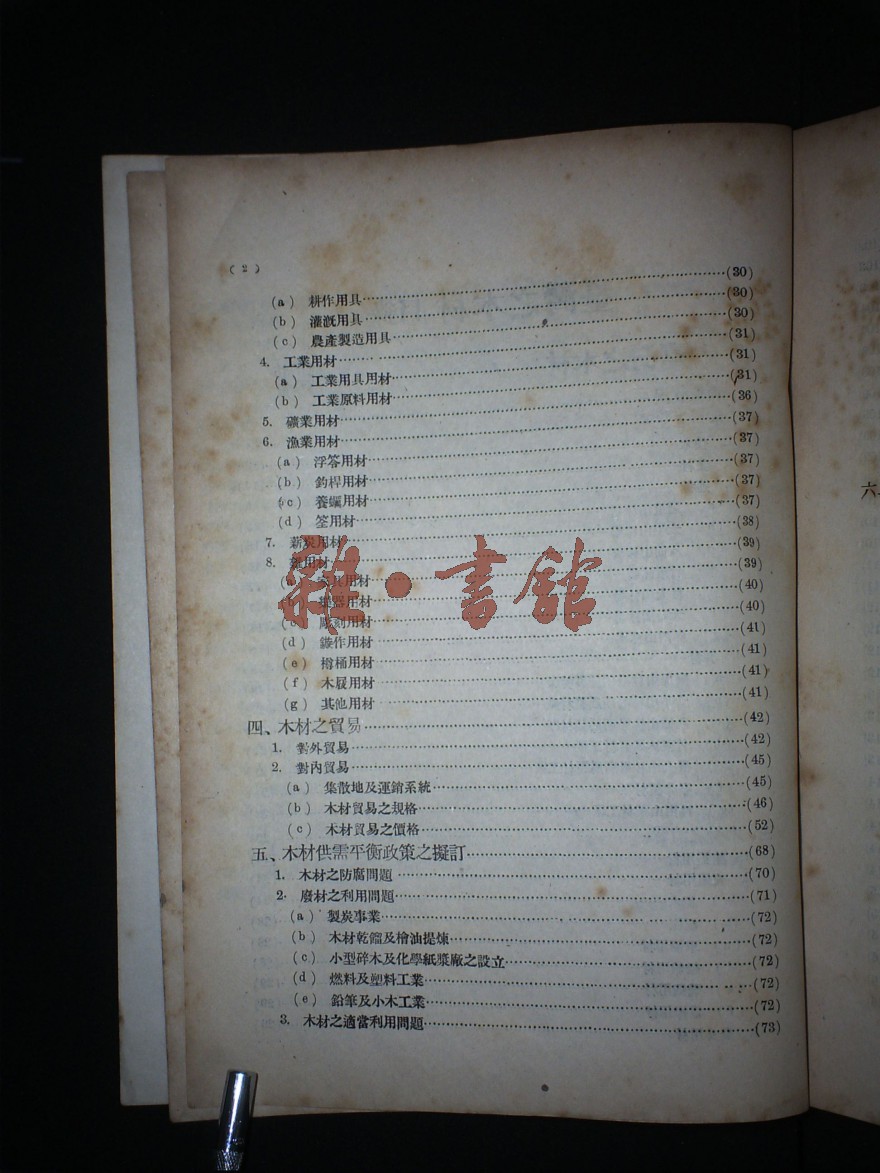 (2)
(a) 耕作用具……(30)
(b) 灌漑用具……(30)
(c) 農產製造用具……(30)
4. 工業用材……(31)
(a) 工業用具用材……(31)
(b) 工業原料用材……(31)
5. 礦業用材……(36)
6. 漁業用材……(37)
(a) 浮筶用材……(37)
(b) 釣桿用材……(37)
(c) 養蠣用材……(37)
(d) 筌用材……(37)
7. 薪炭用材……(38)
8. 雜用材……(39)
家具用材……(39)
(b) 樂器用材……(40)
(c) 彫刻用材……(40)
(d) 鏇作用材……(41)
(e) 樽桶用材……(41)
(f) 木屐用材……(41)
(g) 其他用材……(41)
四、木材之貿易……(42)
1. 對外貿易……(42)
2. 對內貿易……(45)
(a) 集散地及運銷系統……(45)
(b) 木材貿易之規格……(46)
(c) 木材貿易之價格……(52)
五、木材供需平衡政策之擬訂……(68)
1. 木材之防腐問題……(70)
2. 廢材之利用問題……(71)
(a) 製炭事業……(72)
(b) 木材乾餾及檜油提煉……(72)
(c) 小型碎木及化學紙漿廠之設立……(72)
(d) 燃料及塑料工業……(72)
(e) 鉛筆及小木工業……(72)
3. 木材之適當利用問題……(73)
雜·書館
六